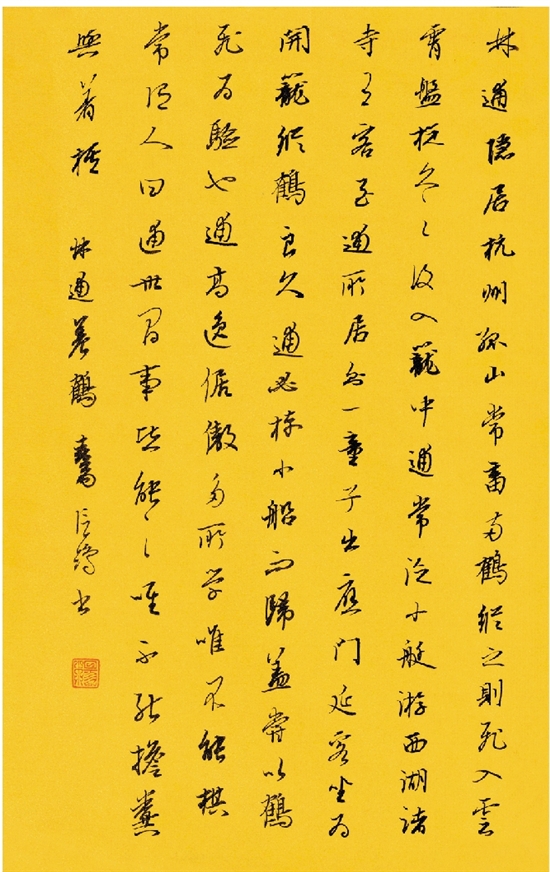 林逋隱居杭州孤山常畜兩鶴縱之則飛入雲
霄盤旋久之復入籠中逋常泛小艇游西湖諸
寺有客至逋所居則一童子出應門延客坐為
開籠縱鶴良久逋必棹小船而歸蓋嘗以鶴
飛為驗也逋高逸倨傲多所學唯不能棋
常謂人曰逋世間事皆能之唯不能擔糞
與著棋 林逋養鶴 書